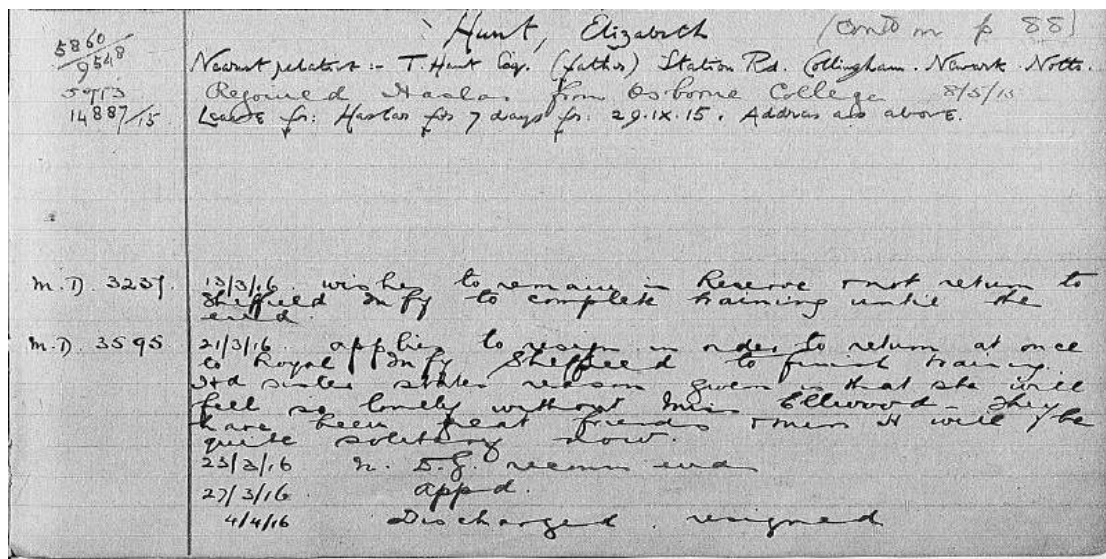 Hunt, Elizabeth (contd on p 88)
5860/9548 Nearest relative :- T. Hunt Esq. (father) Station Rd. Collingham. Newark. Notts.
Rejoined Haslar from Osborne College 8/5/15
14887/15 Leave fr: Haslar for 7 days fr: 29.IX.15. Address as above.
M.D. 3237. 13/3/16. wishes to remain in Reserve & not return to
Sheffield Infy to complete training until the
end.
M.D. 3595 21/3/16. applies to resign in order to return at once
to Royal Infy Sheffield to finish training.
Hd Sister states reason given is that she will
feel so lonely without Miss Ellwood - They
have been great friends & Miss H will be
quite solitary now.
23/3/16 M.D.G. recommends
27/3/16. app d.
4/4/16 Discharged. resigned